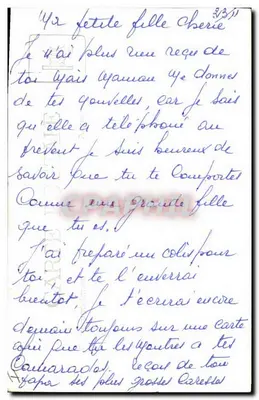 Ma petite fille chérie
Je n'ai plus rien reçu de
toi mais maman me donnes
de tes nouvelles, car je sais
qu'elle a téléphoné au
present je suis heureux de
savoir que tu te comportes
comme une grande fille
que tu es.
J'ai préparé un colis pour
toi et te l'enverrai
bientot. Je t'écrirai encore
demain toujours sur une carte
que tu les montres a tes
Camarades. reçois de ton
Papa ses plus grosses Caresses